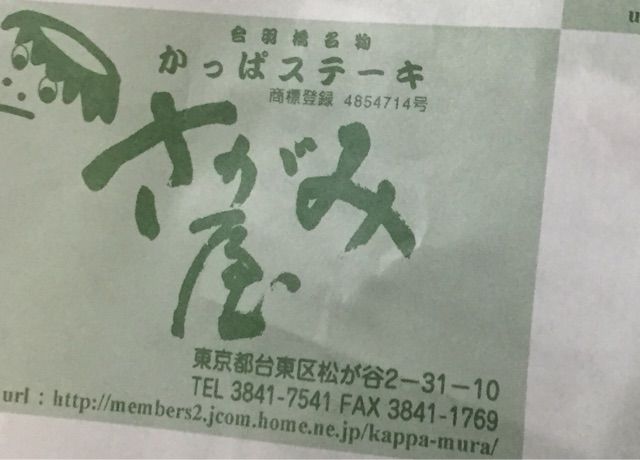 合羽橋名物
かっぱステーキ
商標登録 4854714号
さがみ
屋
東京都台東区松が谷2-31-10
TEL 3841-7541 FAX 3841-1769
url : http://members2.jcom.home.ne.jp/kappa-mura/